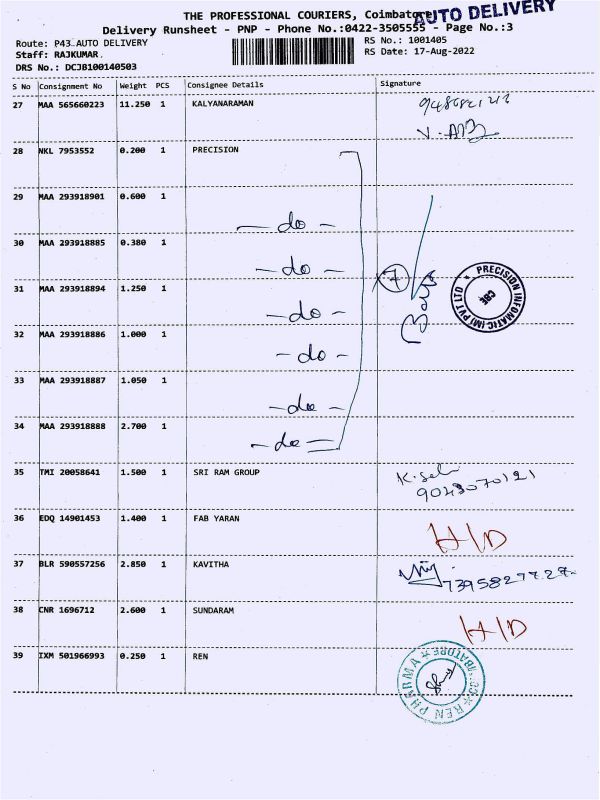 THE PROFESSIONAL COURIERS, Coimbatore
AUTO DELIVERY
Delivery Runsheet - PNP - Phone No.:0422-3505555 - Page No.:3
Route: P43 AUTO DELIVERY
RS No.: 1001405
Staff: RAJKUMAR.
RS Date: 17-Aug-2022
DRS No.: DCJB100140503
S No Consignment No Weight PCS Consignee Details Signature
27 MAA 565660223 11.250 1 KALYANARAMAN
28 NKL 7953552 0.200 1 PRECISION
29 MAA 293918901 0.600 1
- do -
30 MAA 293918885 0.380 1
- do -
31 MAA 293918894 1.250 1
- do -
32 MAA 293918886 1.000 1
- do -
33 MAA 293918887 1.050 1
- do -
34 MAA 293918888 2.700 1
- do -
7
PRECISION INFOMATIC (M) PVT LTD
CBE
35 TMI 20058641 1.500 1 SRI RAM GROUP
36 EDQ 14901453 1.400 1 FAB YARAN
H/D
37 BLR 590557256 2.850 1 KAVITHA
38 CNR 1696712 2.600 1 SUNDARAM
H/D
39 IXM 501966993 0.250 1 REN
REN PHARMA